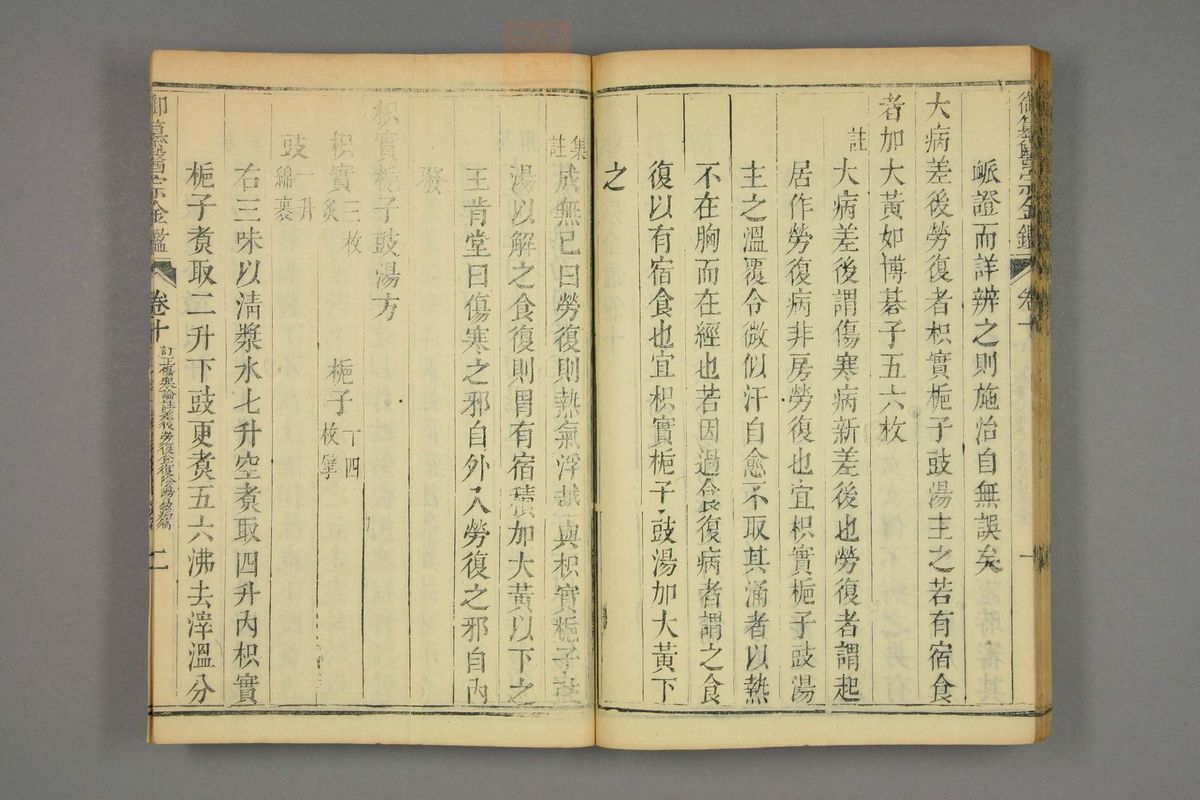 御纂醫宗金鑑
卷十
脈證而詳辨之則施治自無誤矣
大病差後勞復者枳實梔子豉湯主之若有宿食
者加大黃如博碁子五六枚
註
大病差後謂傷寒病新差後也勞復者謂起
居作勞復病非房勞復也宜枳實梔子豉湯
主之溫覆令微似汗自愈不取其涌者以熱
不在胸而在經也若因過食復病者謂之食
復以有宿食也宜枳實梔子豉湯加大黃下
之
集註
成無已曰勞復則熱氣浮越與枳實梔子豉
湯以解之食復則胃有宿積加大黃以下之
王肯堂曰傷寒之邪自外入勞復之邪自內
發
枳實梔子豉湯方
枳實三枚炙
梔子十四枚擘
豉一升綿裹
右三味以清漿水七升空煑取四升內枳實
梔子煑取二升下豉更煑五六沸去滓溫分
御纂醫宗金鑑
卷十
訂正傷寒論註差後勞復食復陰陽易病篇
二